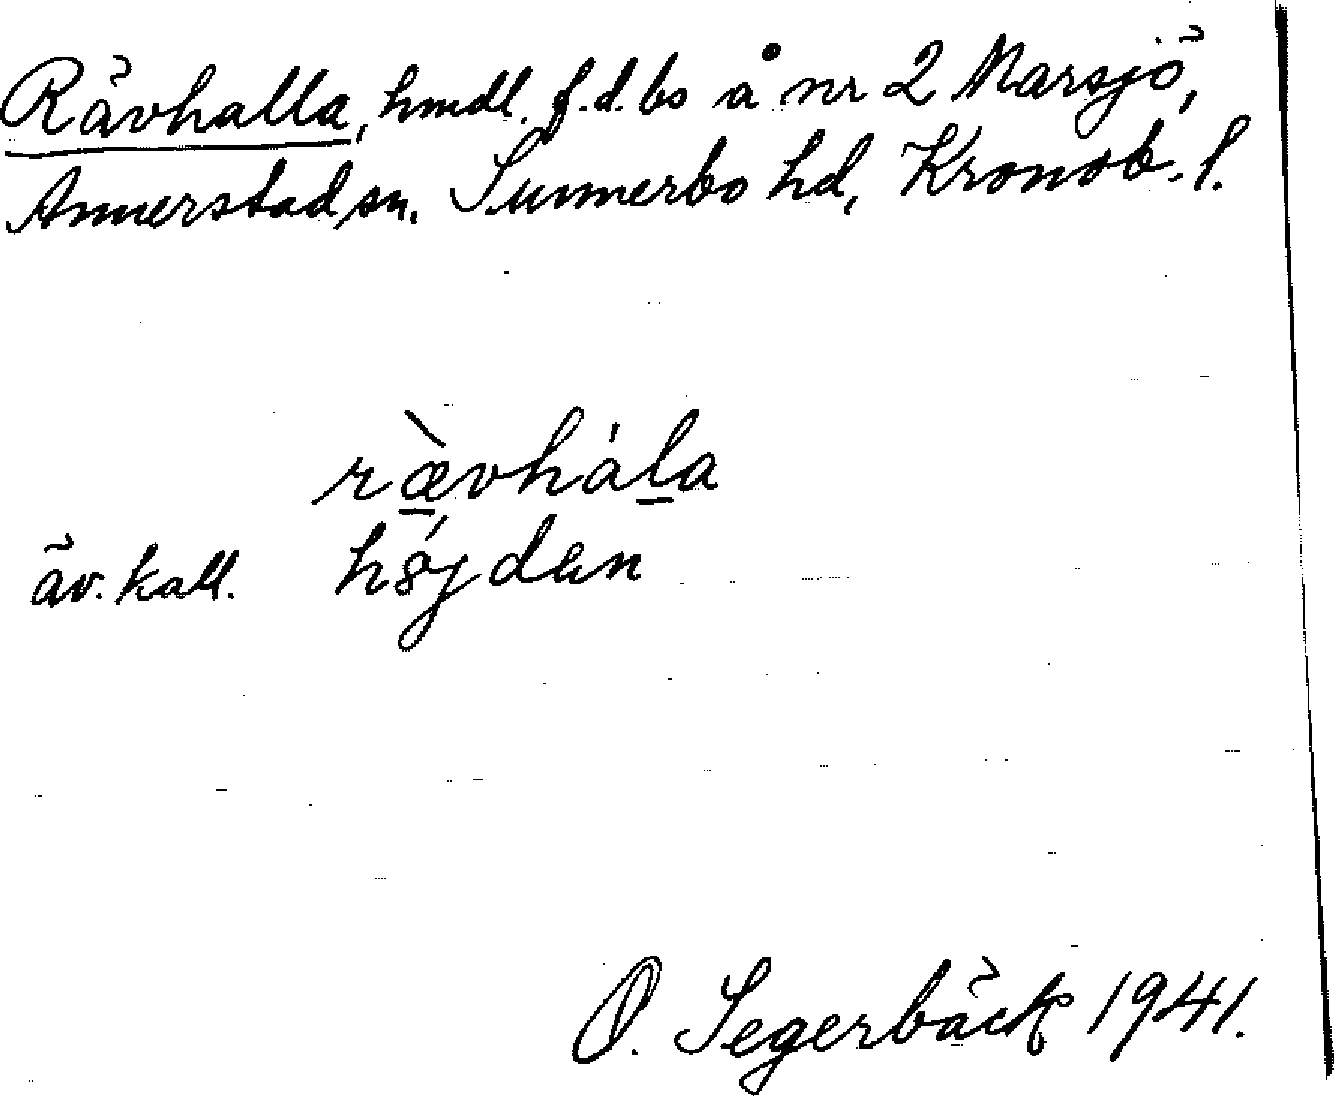 Rävhalla, hmdl. f.d. bo å nr 2 Marsjö,
Annerstad sn. Sunnerbo hd, Kronob. l.
rævhála
äv. kall. hǿjdan
O. Segerbäck 1941.